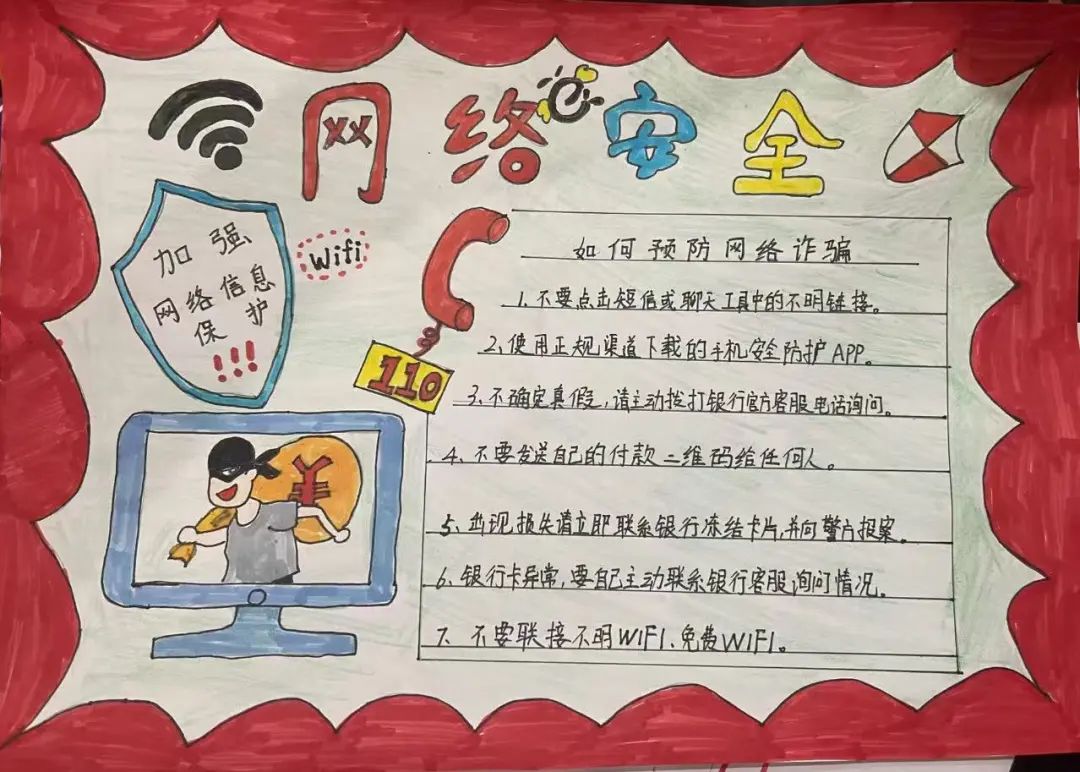 网络安全
加强
网络信息
保护
!!!
Wifi
110
¥
如何预防网络诈骗
1、不要点击短信或聊天工具中的不明链接。
2、使用正规渠道下载的手机安全防护APP。
3、不确定真假，请主动拨打银行官方客服电话询问。
4、不要发送自己的付款二维码给任何人。
5、出现损失请立即联系银行冻结卡片，并向警方报案。
6、银行卡异常，要自己主动联系银行客服询问情况。
7、不要联接不明WIFI、免费WIFI。